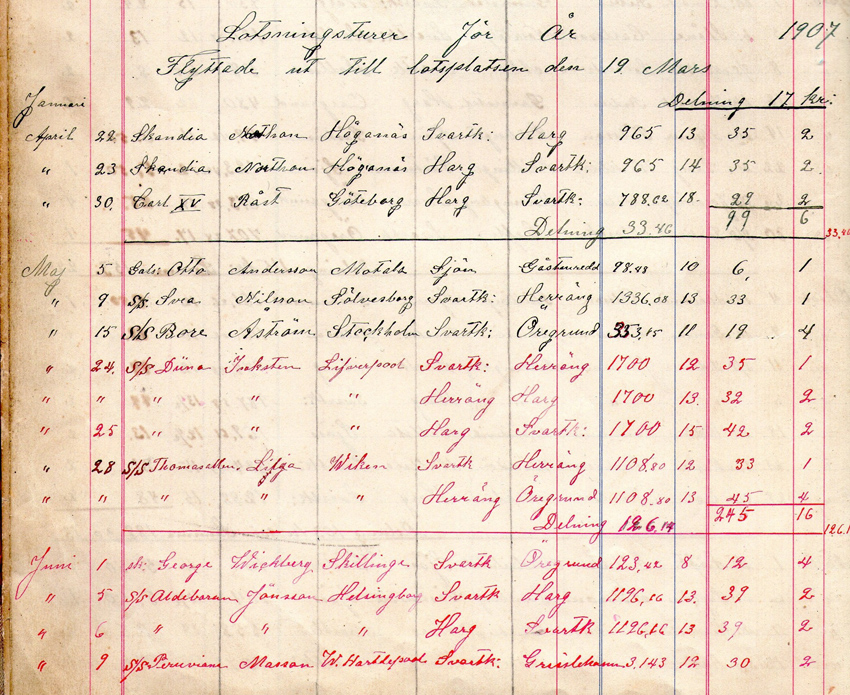 Lotsningsturer för År 1907
Flyttade ut till lotsplatsen den 19 Mars
Januari Delning 17 kr:
April 22 Skandia Northon Höganäs Svartk: Harg 965 13 35 2
" 23 Skandia Northon Höganäs Harg Svartk: 965 14 35 2
" 30. Carl XV Råst Göteborg Harg Svartk: 788,62 18. 29 2
Delning 33.46 99 6 33,46
Maj 5 Otto Andersson Motala Sjön 98.48 10 6, 1
" 9 S/S Svea Nilsson Sölvesborg Svartk: Herräng 1336,08 13 33 1
" 15 S/S Bore Åström Stockholm Svartk: Öregrund 353,15 11 19 4
" 24. S/S Düna Lifverpool Svartk: Herräng 1700 12 35 1
" " " " " Herräng Harg 1700 13. 32 2
" 25 " " " Harg Svartk: 1700 15 42 2
" 28 S/S Wiken Svartk Herräng 1108,80 12 33 1
" " " " " Herräng Öregrund 1108.80 13 45 4
Delning 126,14 245 16 126.1
Juni 1 sk: George Wickberg Skillinge Svartk Öregrund 123,42 8 12 4
" 5 S/S Aldebaran Jönsson Helsingborg Svartk Harg 1196,16 13. 39 2
" 6 " " " Harg Svartk 1196,16 13 39 2
" 9 S/S Peruviana Masson W. Hartlepool Svartk: Grisslehamn 3,143 12 30 2